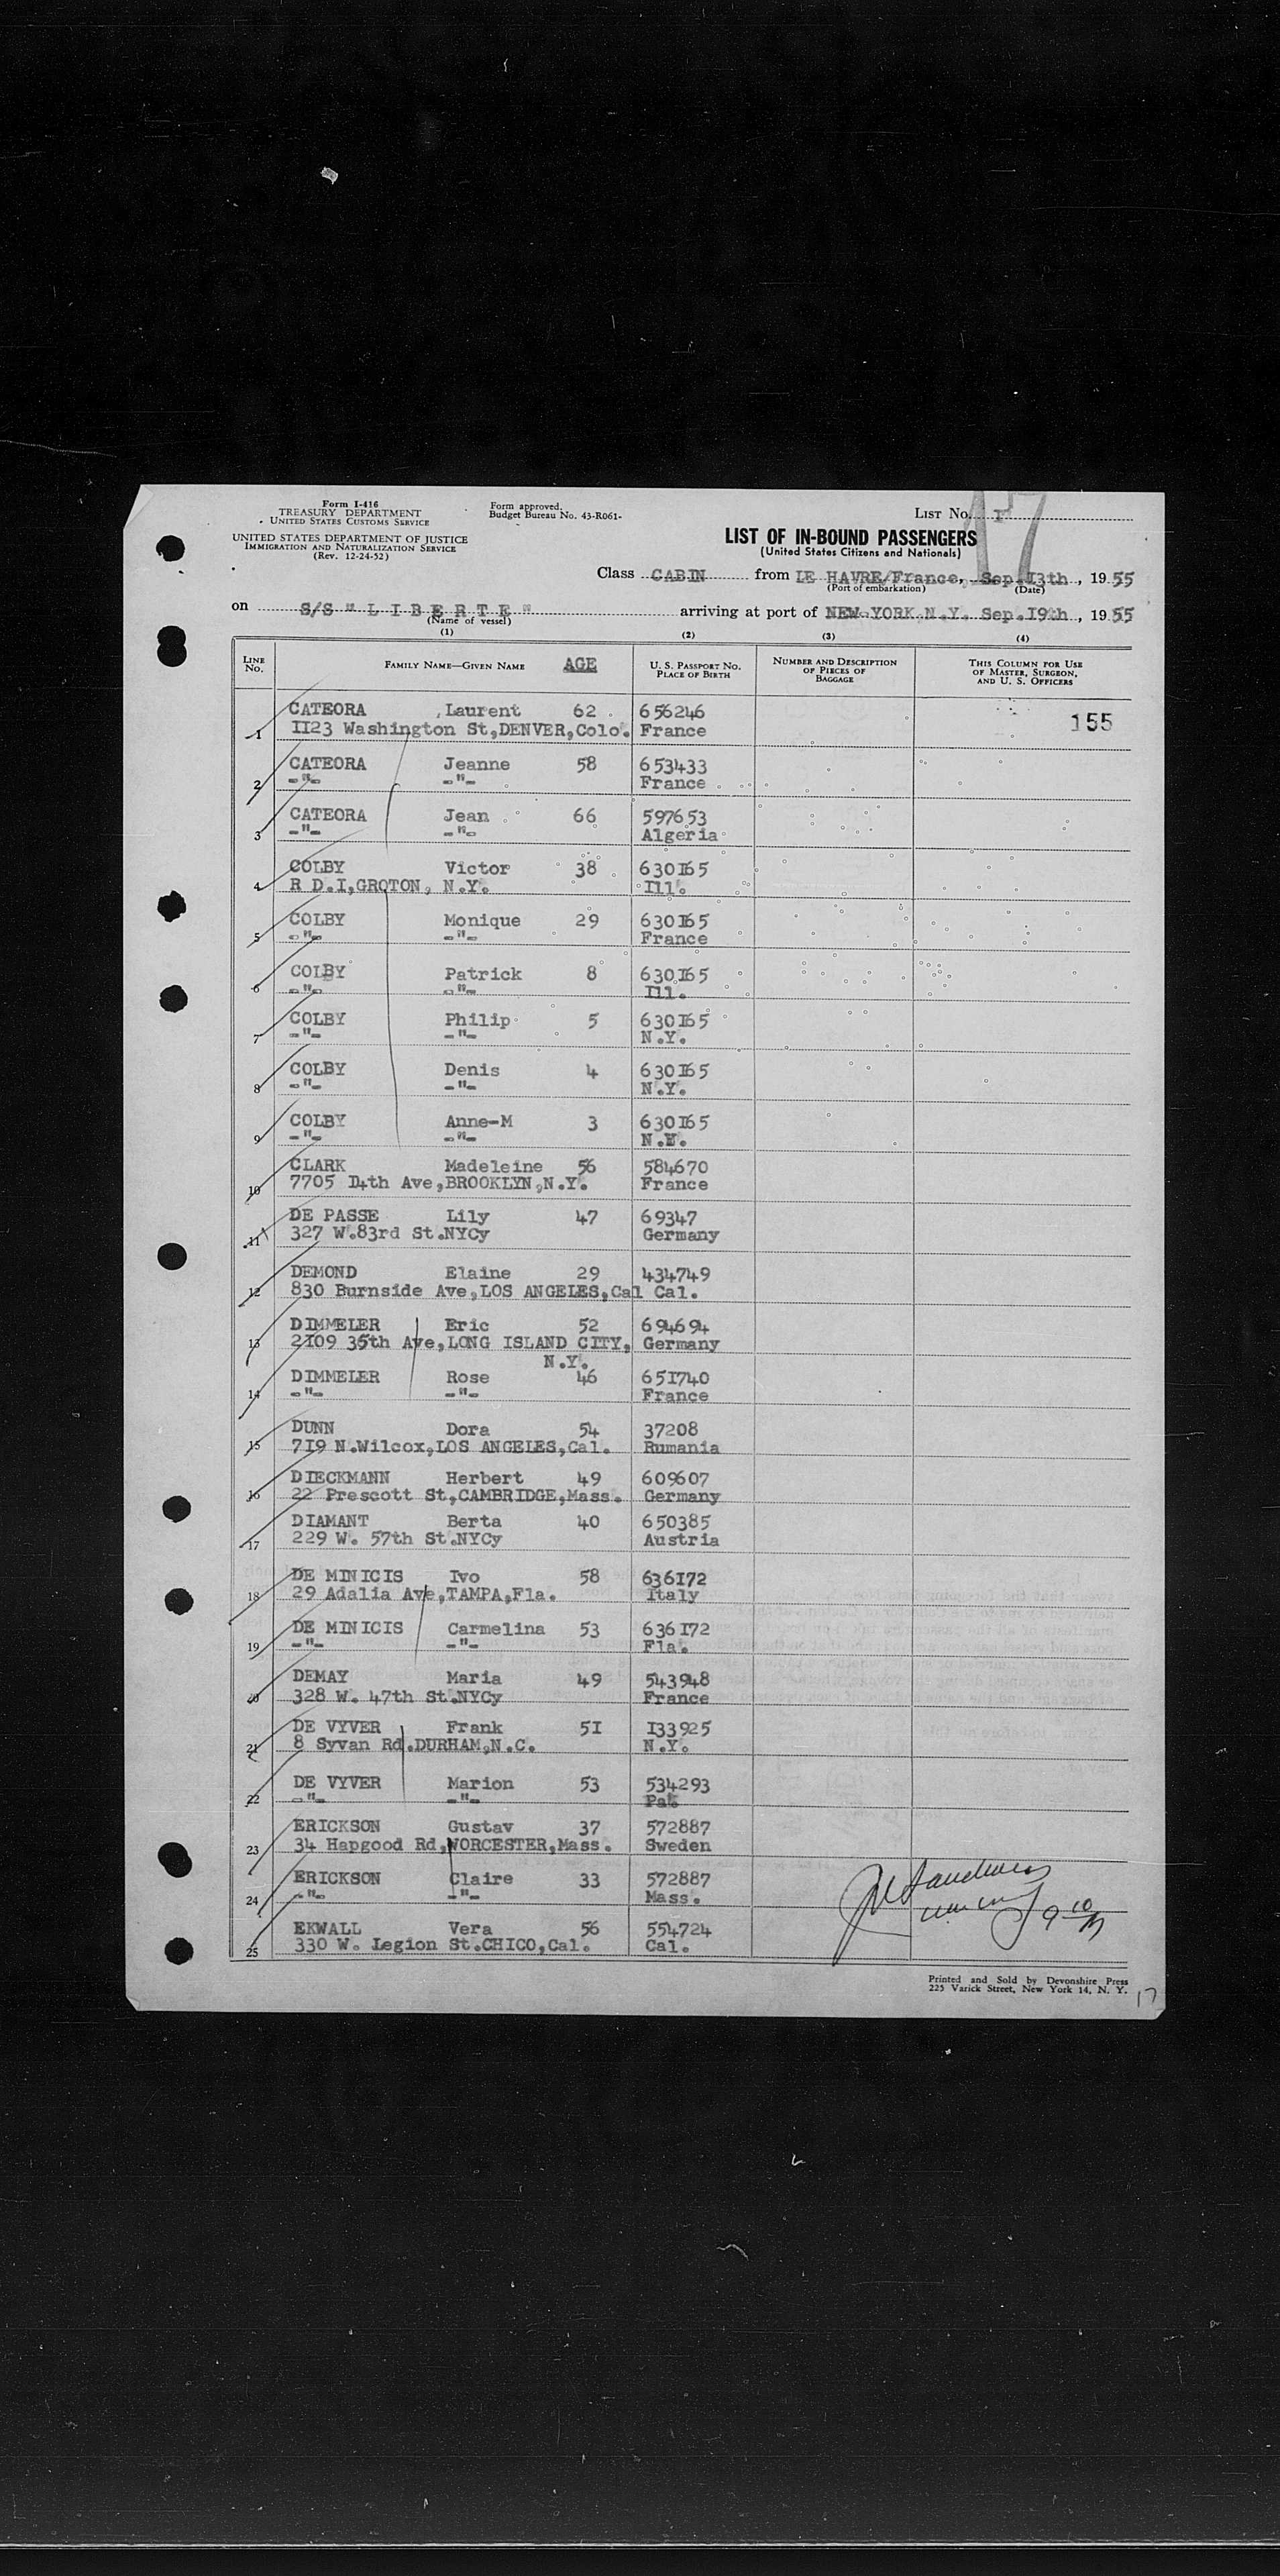 Form I-416
TREASURY DEPARTMENT
UNITED STATES CUSTOMS SERVICE
UNITED STATES DEPARTMENT OF JUSTICE
IMMIGRATION AND NATURALIZATION SERVICE
(Rev. 12-24-52)
Form approved.
Budget Bureau No. 43-R061-
LIST No. I
17
LIST OF IN-BOUND PASSENGERS
(United States Citizens and Nationals)
Class CABIN from LE HAVRE/France, Sep.I3th, 1955
(Port of embarkation) (Date)
on S/S " L I B E R T E " arriving at port of NEW YORK N.Y. Sep.I9th, 1955
(Name of vessel)
(1) (2) (3) (4)
LINE No. FAMILY NAME—GIVEN NAME AGE U. S. PASSPORT NO. PLACE OF BIRTH NUMBER AND DESCRIPTION OF PIECES OF BAGGAGE THIS COLUMN FOR USE OF MASTER, SURGEON, AND U. S. OFFICERS
CATEORA Laurent 62 656246 155
1 II23 Washington St,DENVER,Colo. France
CATEORA Jeanne 58 653433
2 -"- -"- France
CATEORA Jean 66 597653
3 -"- -"- Algeria
COLBY Victor 38 630I65
4 R D.I,GROTON, N.Y. Ill.
COLBY Monique 29 630I65
5 -"- -"- France
COLBY Patrick 8 630I65
6 -"- -"- Ill.
COLBY Philip 5 630I65
7 -"- -"- N.Y.
COLBY Denis 4 630I65
8 -"- -"- N.Y.
COLBY Anne-M 3 630I65
9 -"- -"- N.Y.
CLARK Madeleine 56 584670
10 7705 I4th Ave,BROOKLYN,N.Y. France
DE PASSE Lily 47 69347
11 327 W.83rd St.NYCy Germany
DEMOND Elaine 29 434749
12 830 Burnside Ave,LOS ANGELES,Cal Cal.
DIMMELER Eric 52 694694
13 2I09 35th Ave,LONG ISLAND CITY, Germany
N.Y.
DIMMELER Rose 46 65I740
14 -"- -"- France
DUNN Dora 54 37208
15 7I9 N.Wilcox,LOS ANGELES,Cal. Rumania
DIECKMANN Herbert 49 609607
16 22 Prescott St,CAMBRIDGE,Mass. Germany
DIAMANT Berta 40 650385
17 229 W. 57th St.NYCy Austria
DE MINICIS Ivo 58 636I72
18 29 Adalia Ave,TAMPA,Fla. Italy
DE MINICIS Carmelina 53 636I72
19 -"- -"- Fla.
DEMAY Maria 49 543948
20 328 W. 47th St.NYCy France
DE VYVER Frank 5I I33925
21 8 Syvan Rd.DURHAM,N.C. N.Y.
DE VYVER Marion 53 534293
22 -"- -"- Pa.
ERICKSON Gustav 37 572887
23 34 Hapgood Rd,WORCESTER,Mass. Sweden
ERICKSON Claire 33 572887
24 -"- -"- Mass.
EKWALL Vera 56 554724
25 330 W. Legion St.CHICO,Cal. Cal.
Printed and Sold by Devonshire Press
225 Varick Street, New York 14, N. Y.
17